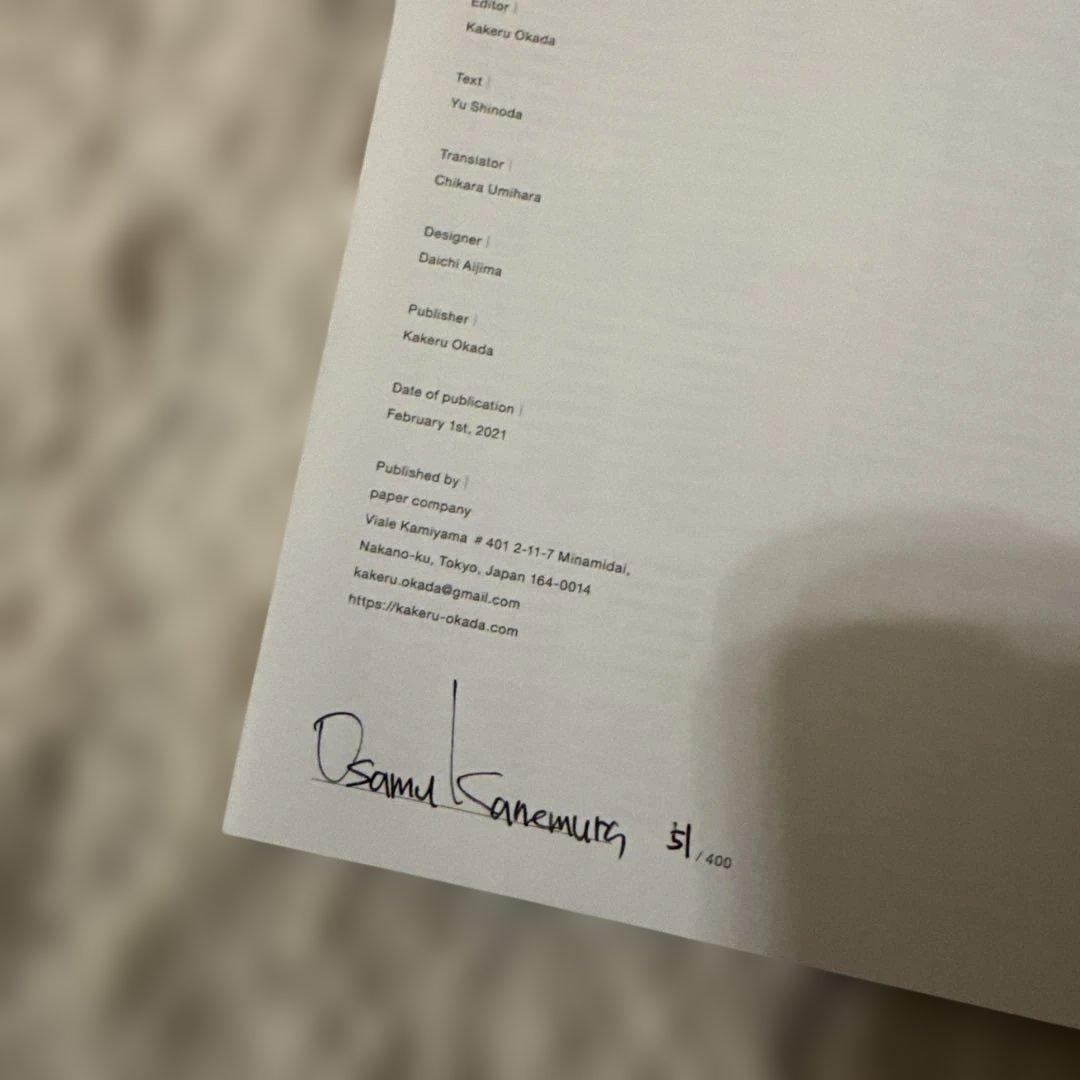 Editor |
Kakeru Okada
Text |
Yu Shinoda
Translator |
Chikara Umihara
Designer |
Daichi Aijima
Publisher |
Kakeru Okada
Date of publication |
February 1st, 2021
Published by |
paper company
Viale Kamiyama # 401 2-11-7 Minamidai,
Nakano-ku, Tokyo, Japan 164-0014
kakeru.okada@gmail.com
https://kakeru-okada.com
Osamu Kanemura 51 / 400